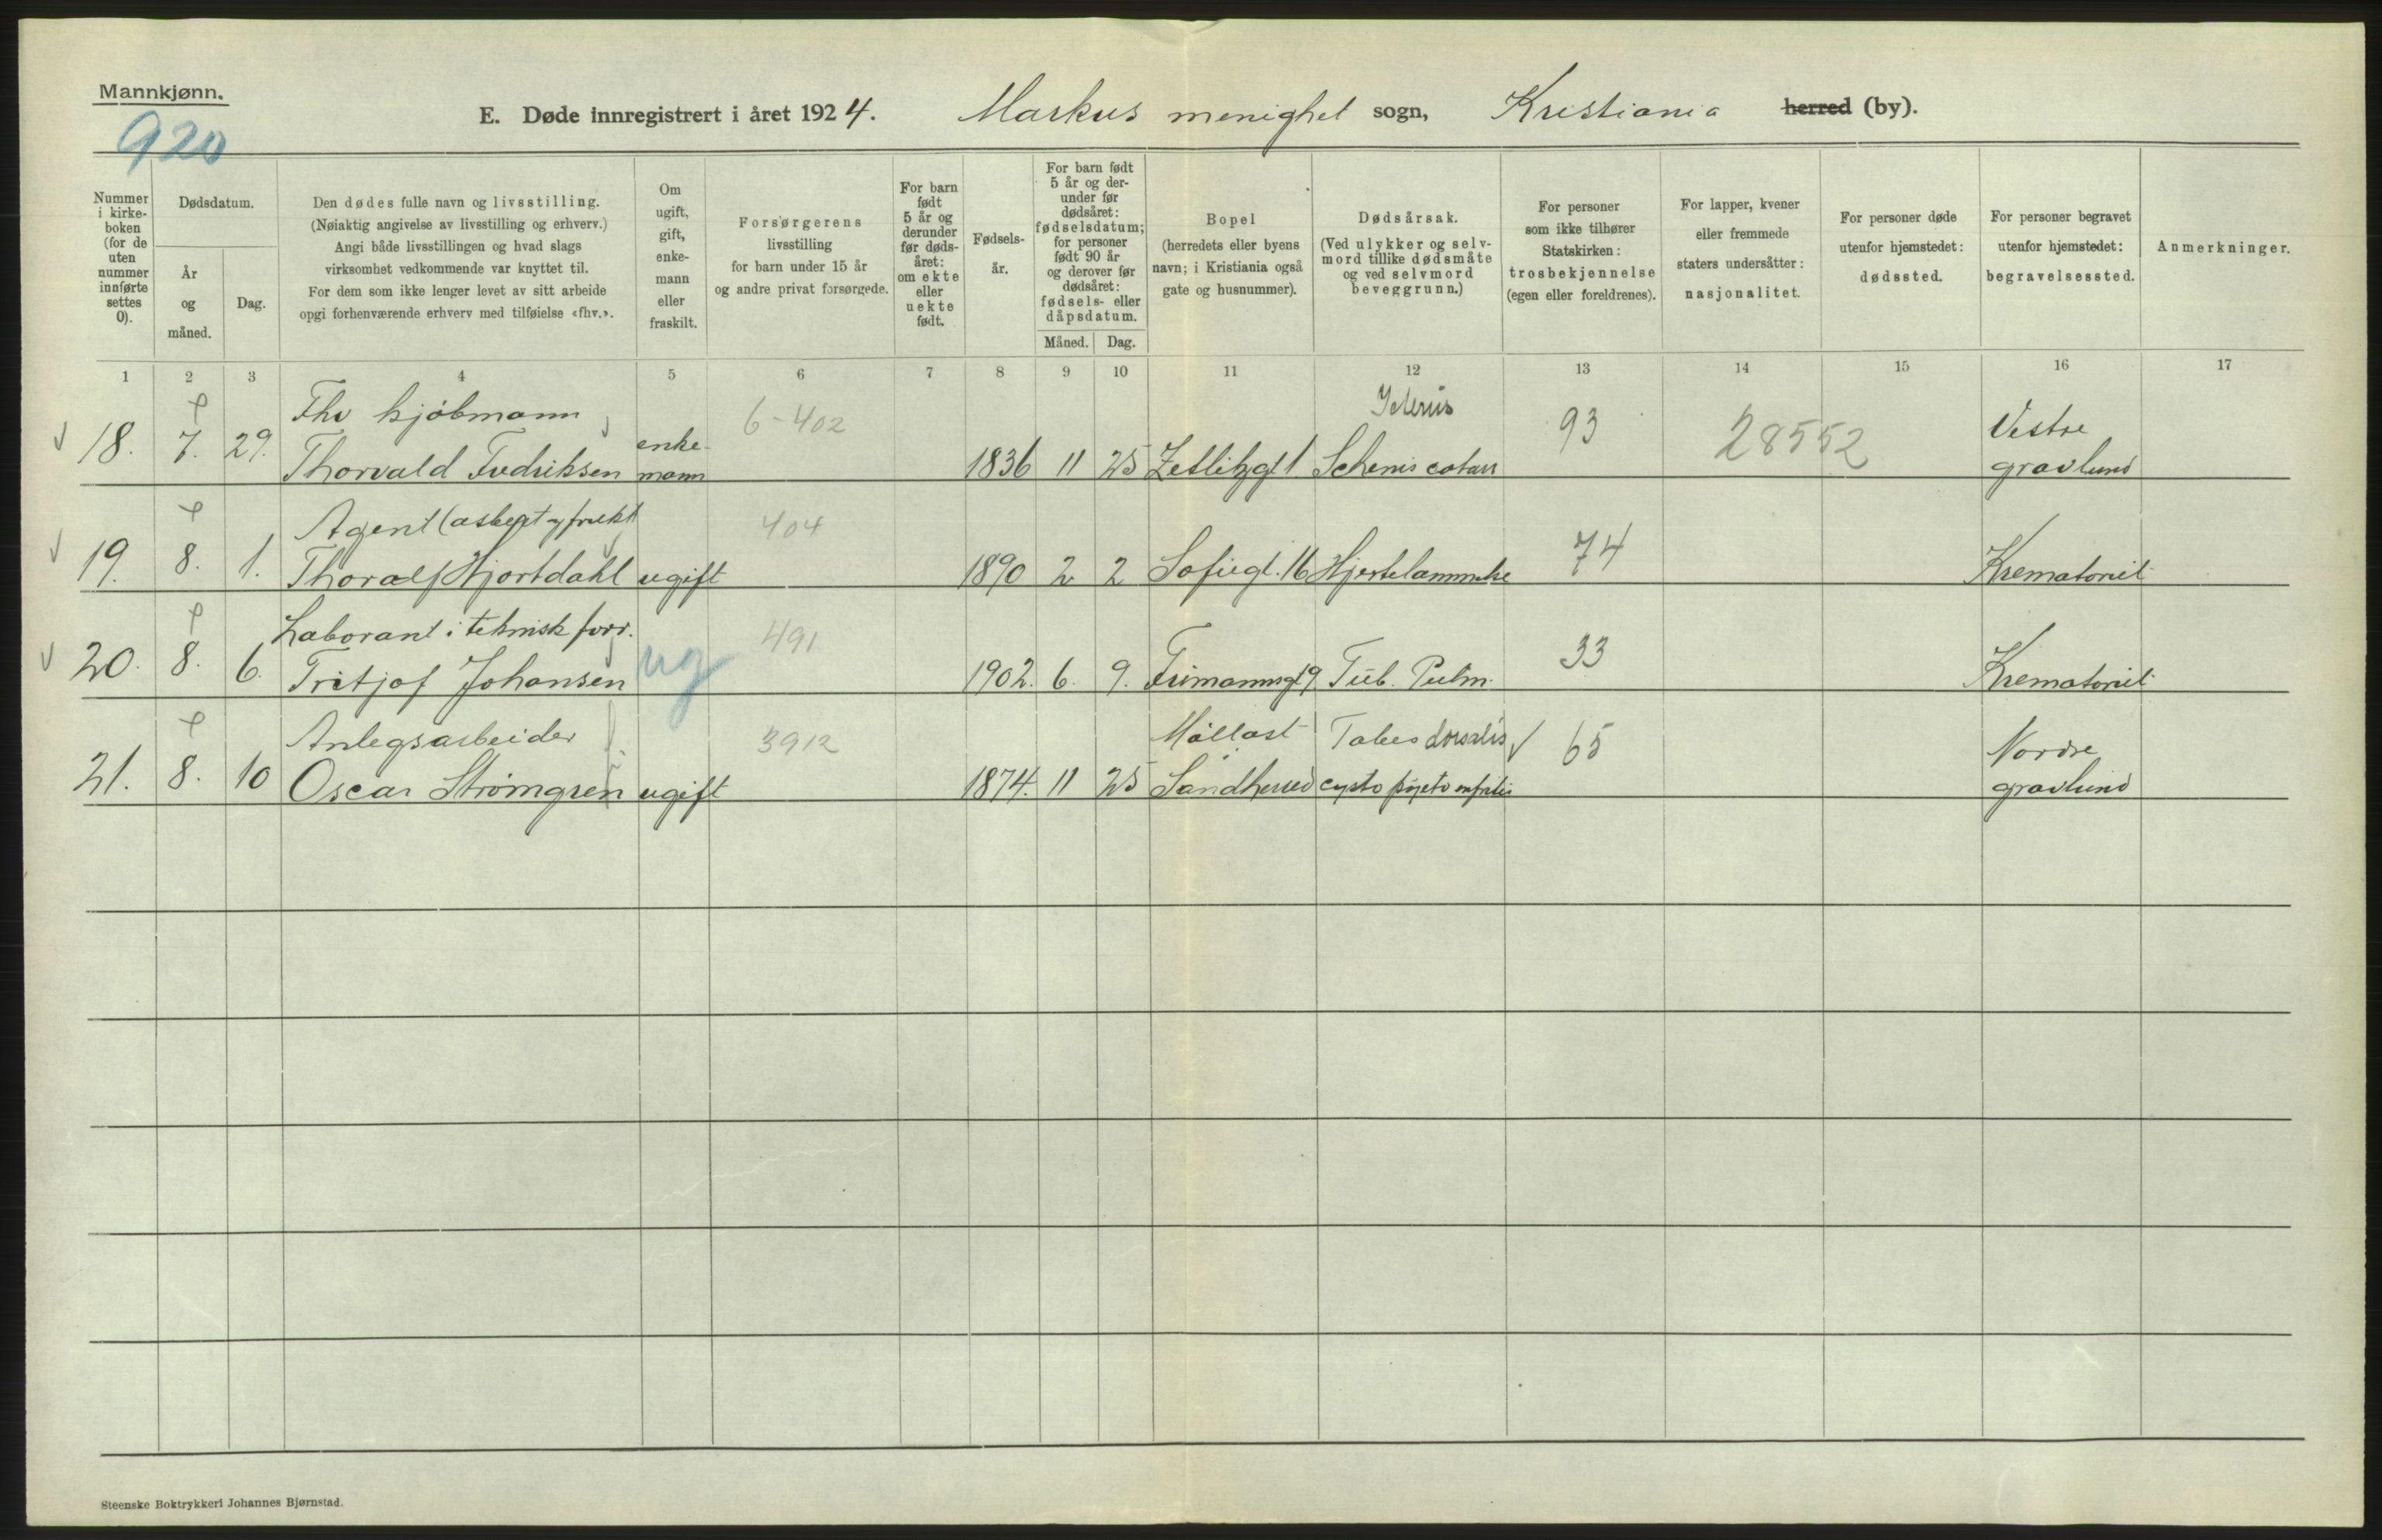 Mannkjønn.
920
E. Døde innregistrert i året 1924. Markus menighet sogn, Kristiania herred (by).
Nummer i kirke-boken (for de uten nummer innførte settes 0).
Dødsdatum.
År og måned.
Dag.
Den dødes fulle navn og livsstilling.
(Nøiaktig angivelse av livsstilling og erhverv.)
Angi både livsstillingen og hvad slags
virksomhet vedkommende var knyttet til.
For dem som ikke lenger levet av sitt arbeide
opgi forhenværende erhverv med tilføielse «fhv.».
Om ugift, gift, enke-mann eller fraskilt.
Forsørgerens
livsstilling
for barn under 15 år
og andre privat forsørgede.
For barn født 5 år og derunder før døds-året: om ekte eller uekte født.
Fødsels-år.
For barn født 5 år og der-under før dødsåret: fødselsdatum; for personer født 90 år og derover før dødsåret: fødsels- eller dåpsdatum.
Måned. Dag.
Bopel
(herredets eller byens
navn; i Kristiania også
gate og husnummer).
Dødsårsak.
(Ved ulykker og selv-
mord tillike dødsmåte
og ved selvmord
beveggrunn.)
For personer
som ikke tilhører
Statskirken:
trosbekjennelse
(egen eller foreldrenes).
For lapper, kvener
eller fremmede
staters undersåtter:
nasjonalitet.
For personer døde
utenfor hjemstedet:
dødssted.
For personer begravet
utenfor hjemstedet:
begravelsessted.
Anmerkninger.
1 2 3 4 5 6 7 8 9 10 11 12 13 14 15 16 17
Fhv kjøbmann 6-402 Icterus 93 28552 Vestre
18. 7. 29. Thorvald Fredriksen enke-mann 1836 11 25 Zetlitzgt 1 gravlund
Agent 404 74
19. 8. 1. Thoralf Hjortdahl ugift 1890 2 2 Sofiegt. 16 Hjertelammelse Krematoriet
Laborant i teknisk forr. 491 33
20. 8. 6. Fritjof Johansen ug 1902. 6. 9. Frimannsgt 9 Tub. Pulm. Krematoriet
Anlegsarbeider 3912 Tabes dorsalis 65 Nordre
21. 8. 10 Oscar Strømgren ugift 1874. 11 25 Sandherred gravlund
Steenske Boktrykkeri Johannes Bjørnstad.